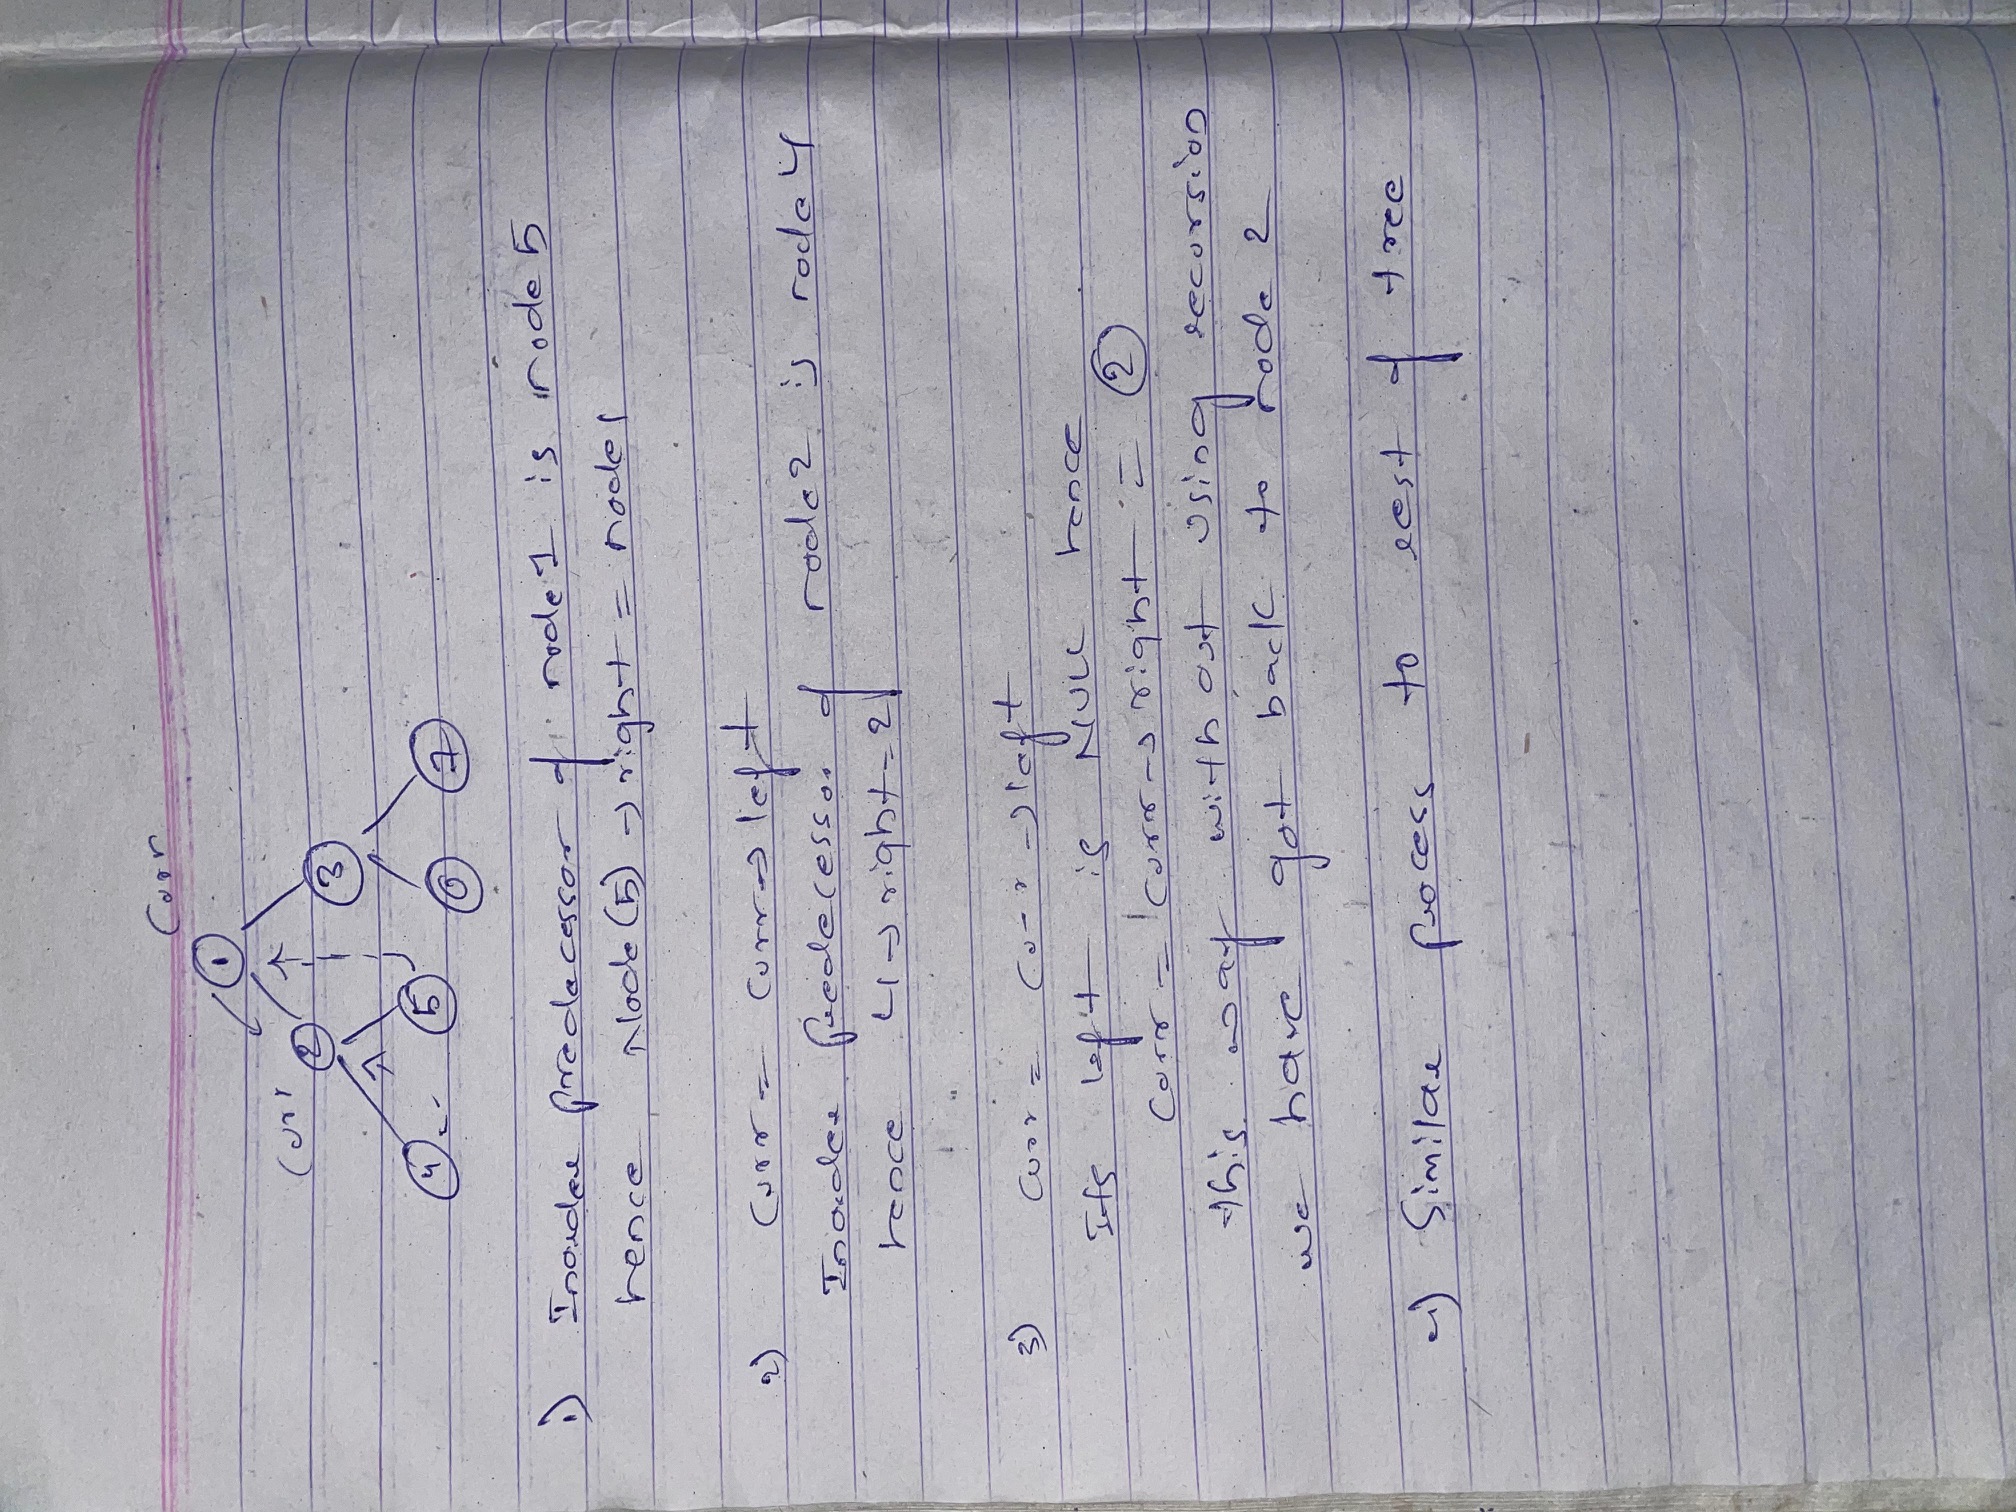 Curr
1
Curr
2
3
4
5
6
7
1) Inorder predecessor of node 1 is node 5
hence Node(5) → right = node 1
2) Curr = Curr → left
Inorder predecessor of node 2 is node 4
hence 4 → right = 2
3) Curr = Curr → left
Its left is NULL hence
Curr = Curr → right = 2
this way without using recursion
we have got back to node 2
4) Similar process to rest of tree